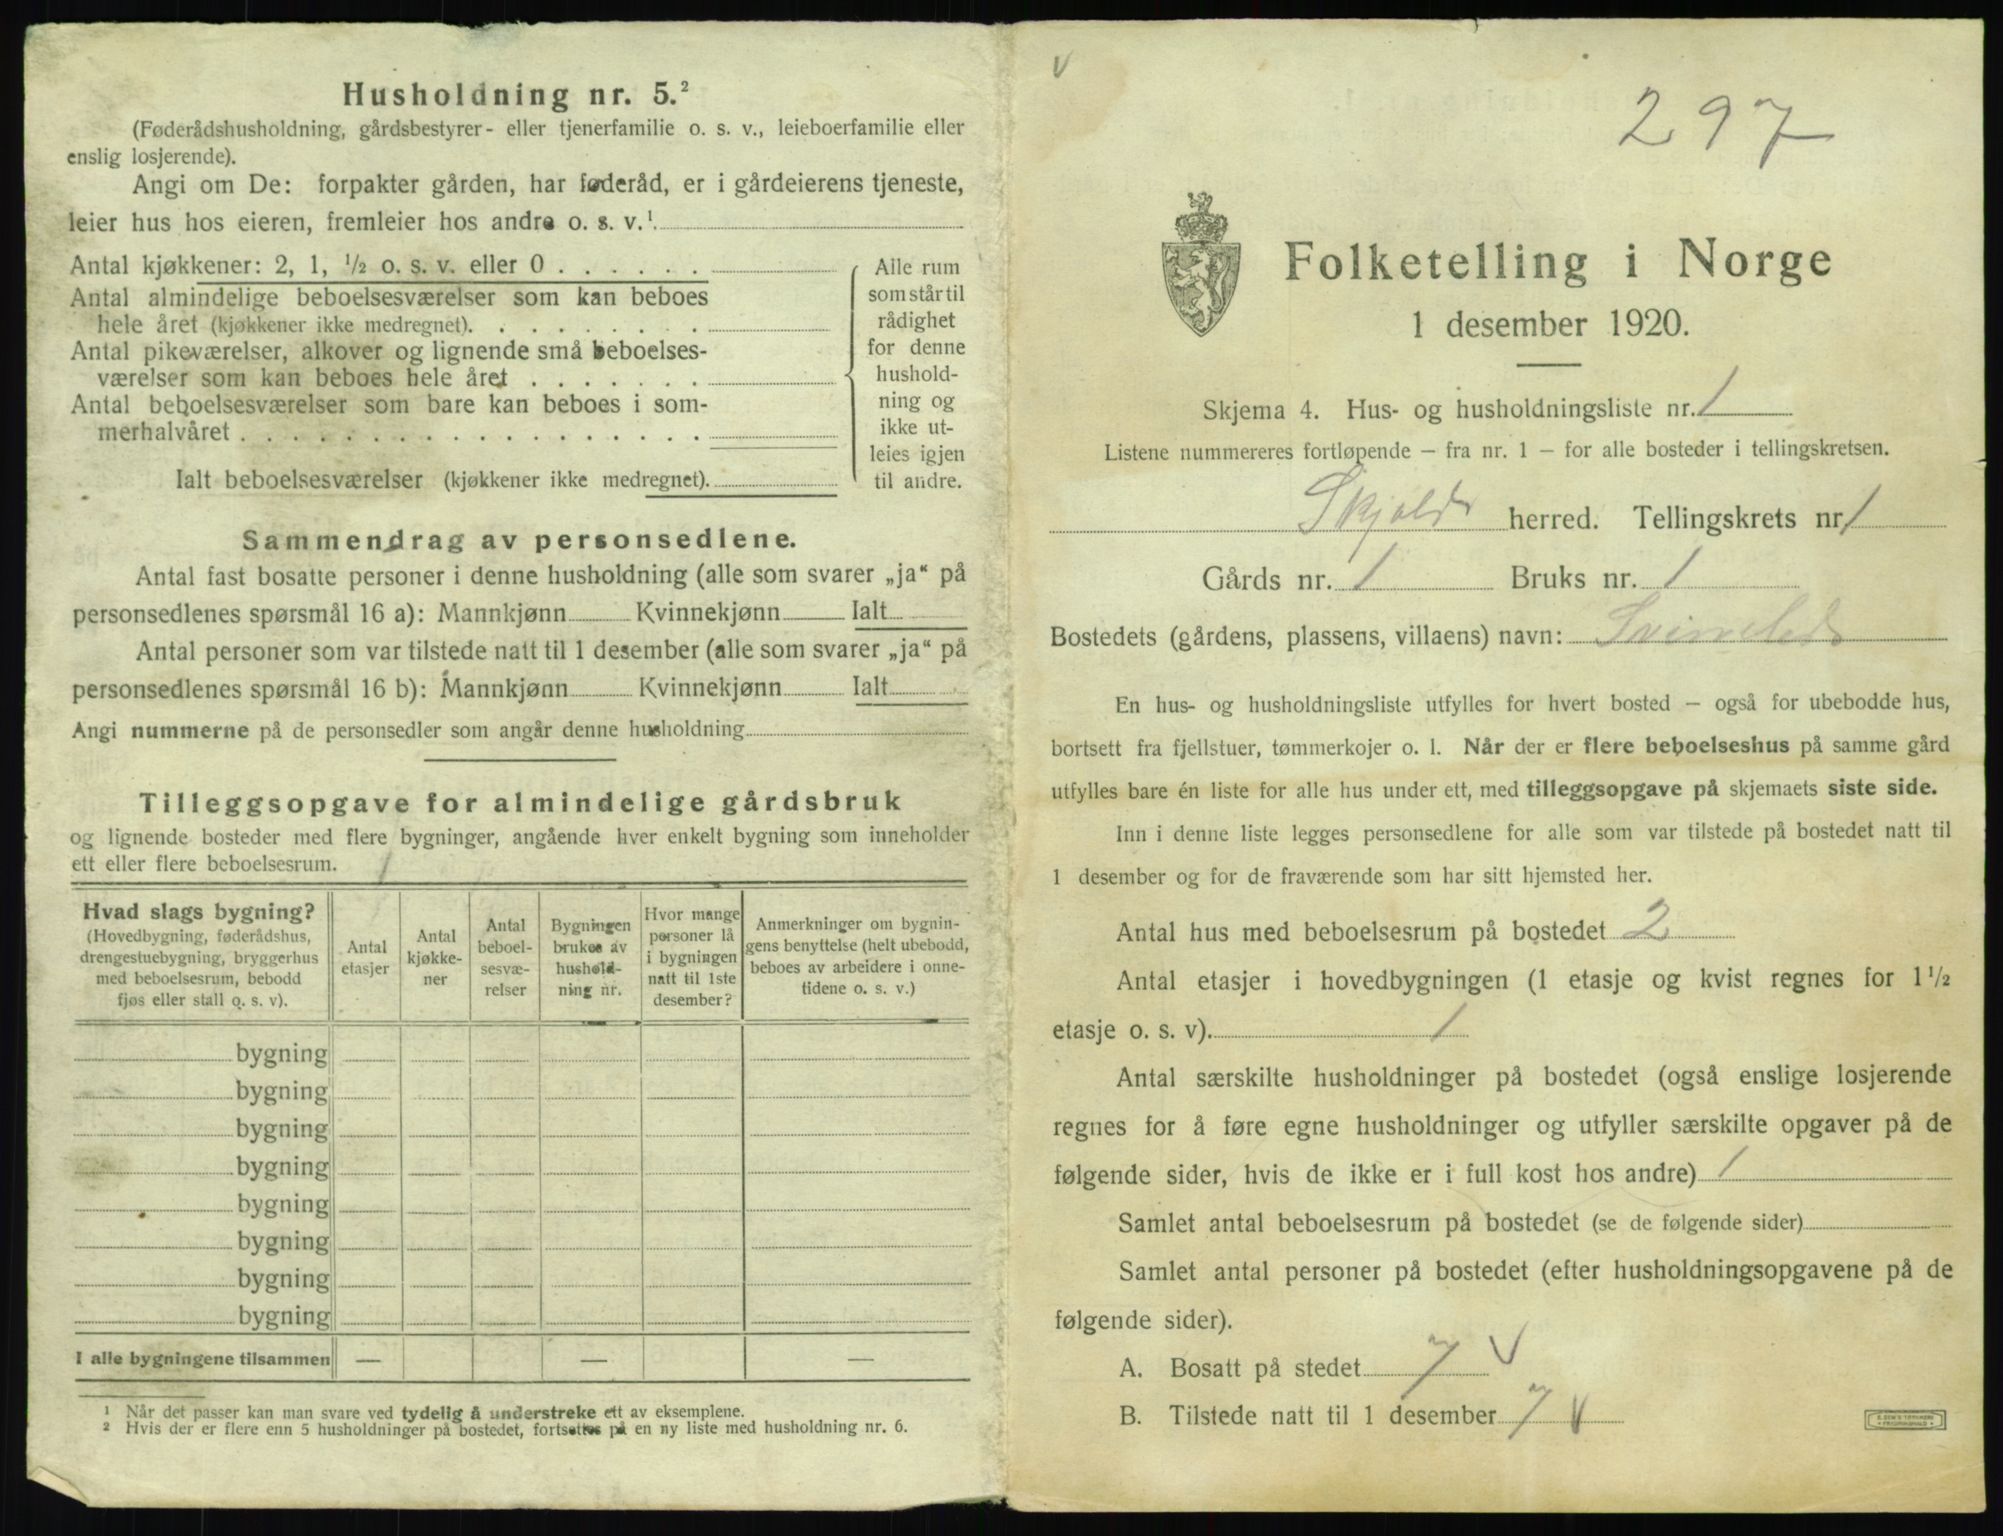 Husholdning nr. 5.²
(Føderådshusholdning, gårdsbestyrer- eller tjenerfamilie o. s. v., leieboerfamilie eller
enslig losjerende).
Angi om De: forpakter gården, har føderåd, er i gårdeierens tjeneste,
leier hus hos eieren, fremleier hos andre o. s. v.¹
Antal kjøkkener: 2, 1, ½ o. s. v. eller 0
Antal almindelige beboelsesværelser som kan beboes
hele året (kjøkkener ikke medregnet).
Antal pikeværelser, alkover og lignende små beboelses-
værelser som kan beboes hele året
Antal beboelsesværelser som bare kan beboes i som-
merhalvåret
Ialt beboelsesværelser (kjøkkener ikke medregnet).
Alle rum
som står til
rådighet
for denne
hushold-
ning og
ikke ut-
leies igjen
til andre.
Sammendrag av personsedlene.
Antal fast bosatte personer i denne husholdning (alle som svarer „ja“ på
personsedlenes spørsmål 16 a): Mannkjønn Kvinnekjønn Ialt
Antal personer som var tilstede natt til 1 desember (alle som svarer „ja“ på
personsedlenes spørsmål 16 b): Mannkjønn Kvinnekjønn Ialt
Angi nummerne på de personsedler som angår denne husholdning
Tilleggsopgave for almindelige gårdsbruk
og lignende bosteder med flere bygninger, angående hver enkelt bygning som inneholder
ett eller flere beboelsesrum.
Hvad slags bygning?
(Hovedbygning, føderådshus,
drengestuebygning, bryggerhus
med beboelsesrum, bebodd
fjøs eller stall o. s. v).
Antal
etasjer
Antal
kjøkke-
ner
Antal
beboel-
sesvæ-
relser
Bygningen
brukes av
hushold-
ning nr.
Hvor mange
personer lå
i bygningen
natt til 1ste
desember?
Anmerkninger om bygnin-
gens benyttelse (helt ubebodd,
beboes av arbeidere i onne-
tidene o. s. v.)
bygning
bygning
bygning
bygning
bygning
bygning
bygning
bygning
I alle bygningene tilsammen — — —
¹ Når det passer kan man svare ved tydelig å understreke ett av eksemplene.
² Hvis der er flere enn 5 husholdninger på bostedet, fortsettes på en ny liste med husholdning nr. 6.
297
Folketelling i Norge
1 desember 1920.
Skjema 4. Hus- og husholdningsliste nr. 1
Listene nummereres fortløpende – fra nr. 1 – for alle bosteder i tellingskretsen.
Skjold herred. Tellingskrets nr. 1
Gårds nr. 1 Bruks nr. 1
Bostedets (gårdens, plassens, villaens) navn:
En hus- og husholdningsliste utfylles for hvert bosted – også for ubebodde hus,
bortsett fra fjellstuer, tømmerkojer o. l. Når der er flere beboelseshus på samme gård
utfylles bare én liste for alle hus under ett, med tilleggsopgave på skjemaets siste side.
Inn i denne liste legges personsedlene for alle som var tilstede på bostedet natt til
1 desember og for de fraværende som har sitt hjemsted her.
Antal hus med beboelsesrum på bostedet 2
Antal etasjer i hovedbygningen (1 etasje og kvist regnes for 1 ½
etasje o. s. v). 1
Antal særskilte husholdninger på bostedet (også enslige losjerende
regnes for å føre egne husholdninger og utfyller særskilte opgaver på de
følgende sider, hvis de ikke er i full kost hos andre) 1
Samlet antal beboelsesrum på bostedet (se de følgende sider)
Samlet antal personer på bostedet (efter husholdningsopgavene på de
følgende sider).
A. Bosatt på stedet 7 V
B. Tilstede natt til 1 desember 7 V